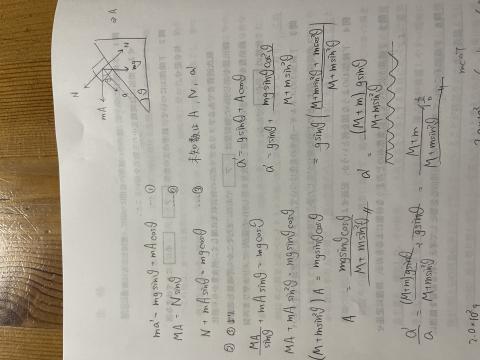 N
N
mg
mA
a'
θ
⇒ A
ma' = mg sinθ + mA cosθ … ①
MA = N sinθ … ②
N + mA sinθ = mg cosθ … ③
未知数は A, N, a'
②, ③より
MA/sinθ + mA sinθ = mg cosθ
MA + mA sin²θ = mg sinθ cosθ
(M + m sin²θ) A = mg sinθ cosθ
A = mg sinθ cosθ / (M + m sin²θ)
a' = g sinθ + A cosθ
a' = g sinθ + mg sinθ cos²θ / (M + m sin²θ)
= g sinθ ( (M + m sin²θ + m cos²θ) / (M + m sin²θ) )
a' = (M + m) g sinθ / (M + m sin²θ)
a'/a = (M + m) g sinθ / (M + m sin²θ) ÷ g sinθ = (M + m) / (M + m sin²θ)